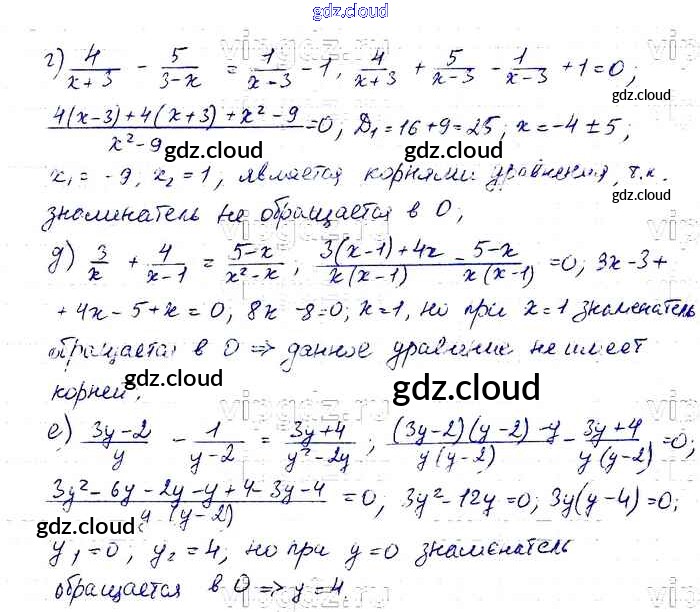 gdz.cloud
г) 4/(x+3) - 5/(3-x) = 1/(x-3) - 1, 4/(x+3) + 5/(x-3) - 1/(x-3) + 1 = 0;
gdz.cloud
(4(x-3)+4(x+3)+x²-9)/(x²-9) = 0; D₁ = 16+9 = 25; x = -4 ± 5;
gdz.cloud gdz.cloud
x₁ = -9, x₂ = 1, является корнями уравнения, т.к.
gdz.cloud
знаминатель не обращается в 0;
д) 3/x + 4/(x-1) = (5-x)/(x²-x); (3(x-1)+4x)/(x(x-1)) - (5-x)/(x(x-1)) = 0, 3x-3+
+4x-5+x=0, 8x-8=0; x=1, но при x=1 знаменатель
обращается в 0 => данное уравнение не имеет
gdz.cloud gdz.cloud
корней.
е) (3y-2)/y - 1/(y-2) = (3y+4)/(y²-2y); ((3y-2)(y-2)-y)/(y(y-2)) - (3y+4)/(y(y-2)) = 0;
gdz.cloud
(3y²-6y-2y-y+4-3y-4)/(y(y-2)) = 0, 3y²-12y=0; 3y(y-4)=0;
gdz.cloud gdz.cloud
y₁=0, y₂=4, но при y=0 знаменатель
обращается в 0 => y=4.